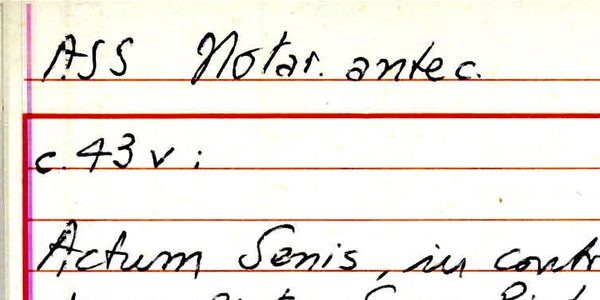 ASS Notar. antec.
c. 43 v :
Actum Senis, in contr